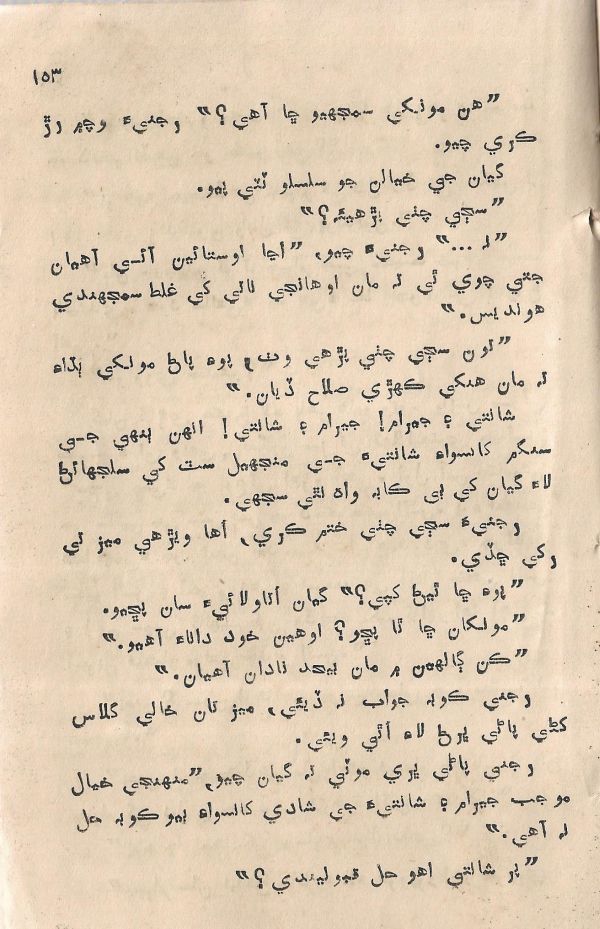 ١٥٣
”هن مونکي سمجهيو ڇا آهي؟“ رجنيءَ وچ۾ رڙ
ڪري چيو.
گيان جي خيالن جو سلسلو ٽٽي پيو.
”سڄي چٺي پڙهيئه؟“
”نه ...“ رجنيءَ چيو، ”اڃا اوستائين آئي آهيان
جتي چوي ٿي ته مان اوهانجي ناني کي غلط سمجهندي
هونديس.“
”تون سڄي چٺي پڙهي وٺ، پوءِ پاڻ مونکي ٻڌاءِ
ته مان هنکي ڪهڙي صلاح ڏيان.“
شانتي ۽ جيرام! جيرام ۽ شانتي! انهن ٻنهي جي
سنگم کانسواءِ شانتيءَ جي منجهيل سٽ کي سلجهائڻ
لاءِ گيان کي ٻي ڪابه واٽ نٿي سجهي.
رجنيءَ سڄي چٺي ختم ڪري، اها ويڙهي ميز تي
رکي ڇڏي.
”پوءِ ڇا ٿيڻ کپي؟“ گيان اُتاولائيءَ سان پڇيو.
”مونکان ڇا ٿا پڇو؟ اوهين خود داناءُ آهيو.“
”ڪن ڳالهين ۾ مان بيحد نادان آهيان.“
رجني ڪوبه جواب نه ڏيئي، ميز تان خالي گلاس
کڻي پاڻي ڀرڻ لاءِ اُٿي ويئي.
رجني پاڻي ڀري موٽي ته گيان چيو، ”منهنجي خيال
موجب جيرام ۽ شانتيءَ جي شادي کانسواءِ ٻيو ڪوبه حل
نه آهي.“
”پر شانتي اهو حل قبوليندي؟“